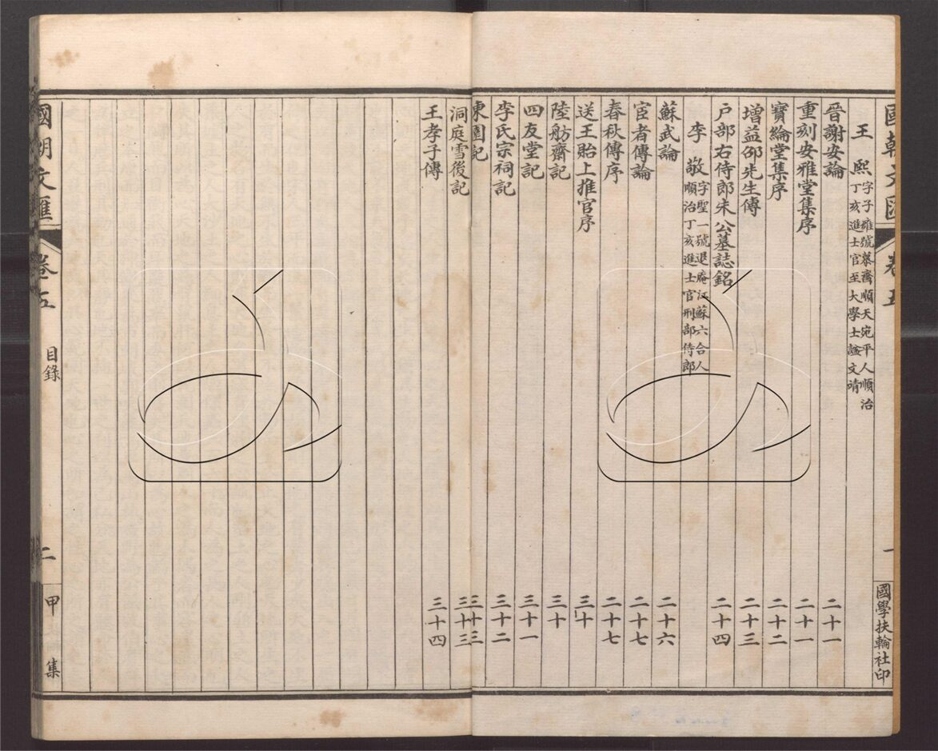 國朝文匯 卷五 一 國學扶輪社印
王熙 字子雍號慕齋順天宛平人順治
丁亥進士官至大學士諡文靖
晉謝安論 二十一
重刻安雅堂集序 二十一
寶綸堂集序 二十二
增益邵先生傳 二十三
戶部右侍郎朱公墓誌銘 二十四
李敬 字聖一號退庵江蘇六合人
順治丁亥進士官刑部侍郎
蘇武論 二十六
宦者傳論 二十七
春秋傳序 二十七
送王貽上推官序 三十
陸舫齋記 三十
四友堂記 三十一
李氏宗祠記 三十二
東園記 三十三
洞庭雪後記 三十三
王孝子傳 三十四
國朝文匯 卷五 目錄 二 甲集